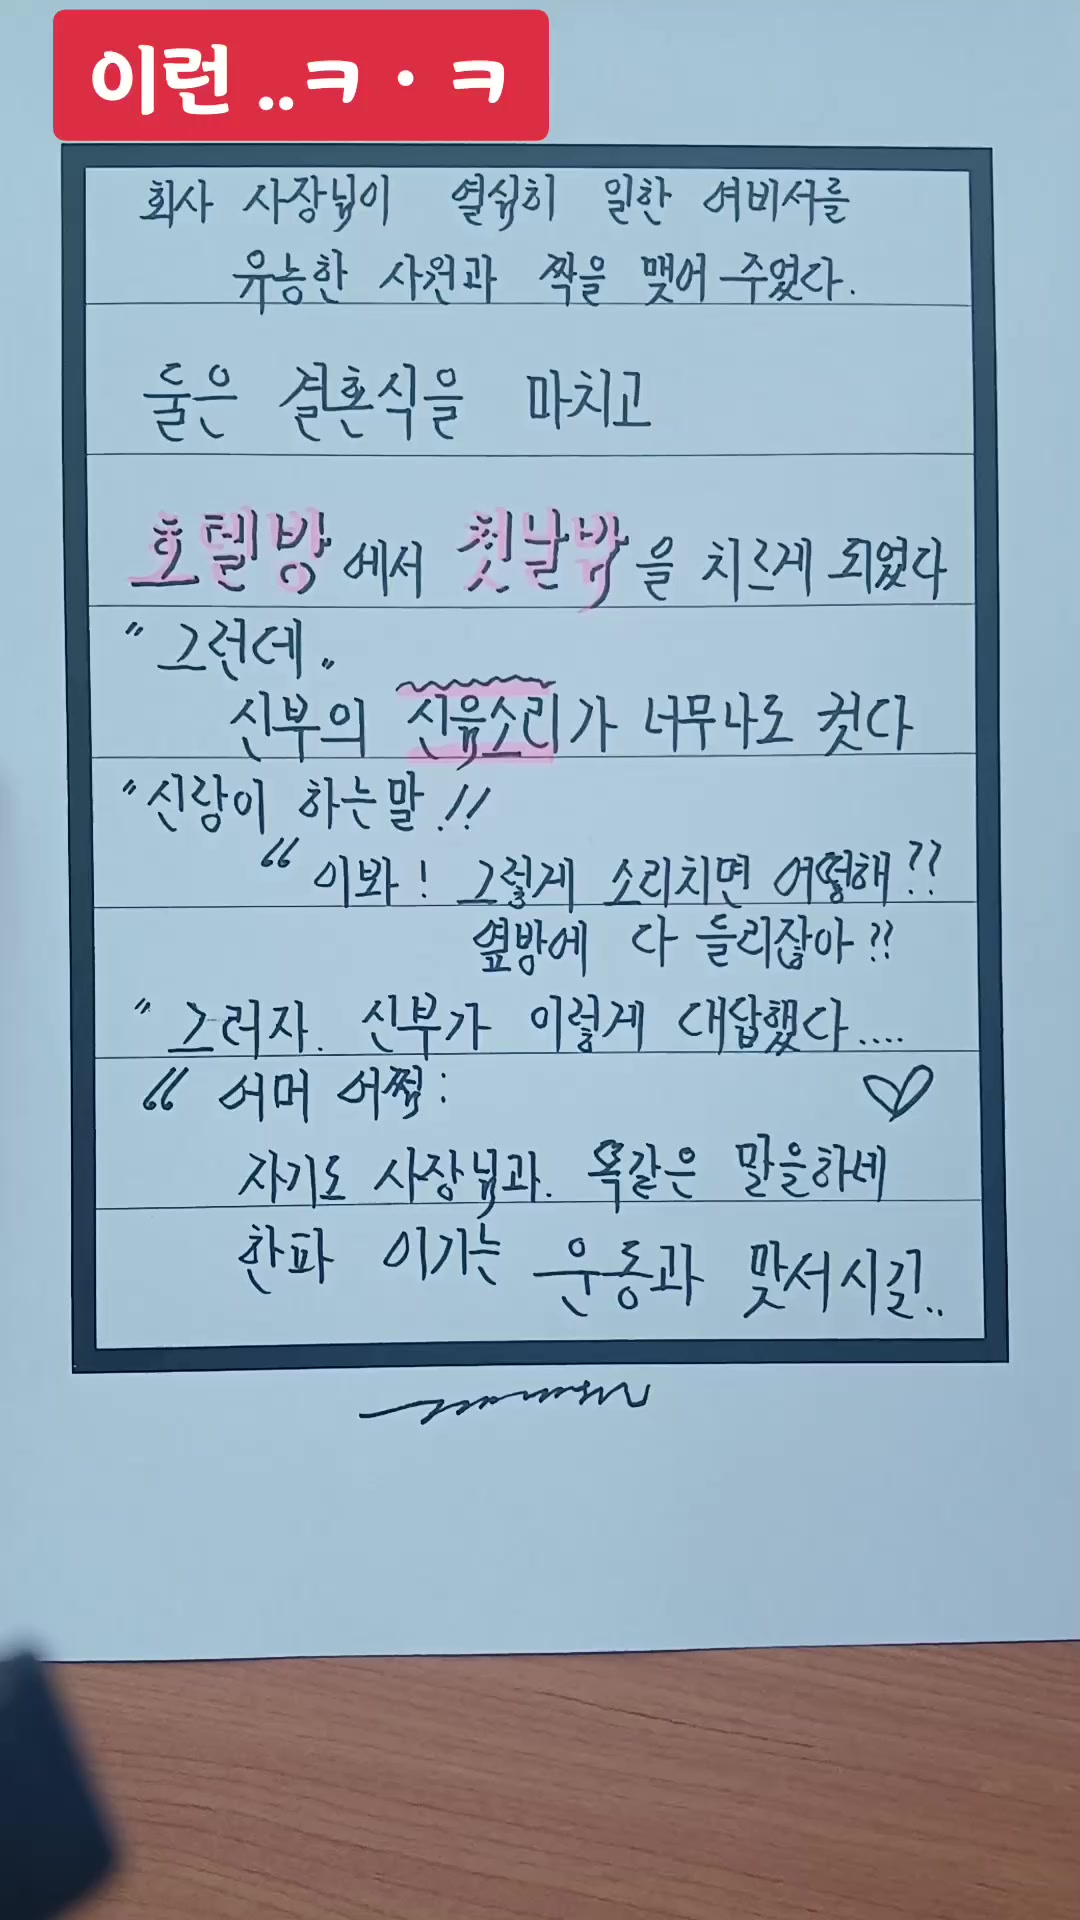 이런 ..ㅋ·ㅋ
회사 사장님이 열심히 일한 여비서를
유능한 사원과 짝을 맺어 주었다.
둘은 결혼식을 마치고
호텔방에서 첫날밤을 치르게 되었다
"그런데"
신부의 신음소리가 너무나도 컷다
"신랑이 하는말!!
"이봐! 그렇게 소리치면 어떻해??
옆방에 다 들리잖아??
"그러자. 신부가 이렇게 대답했다....
"어머 어쩜:
자기도 사장님과. 똑같은 말을하네
한파 이기는 운동과 맞서시길..